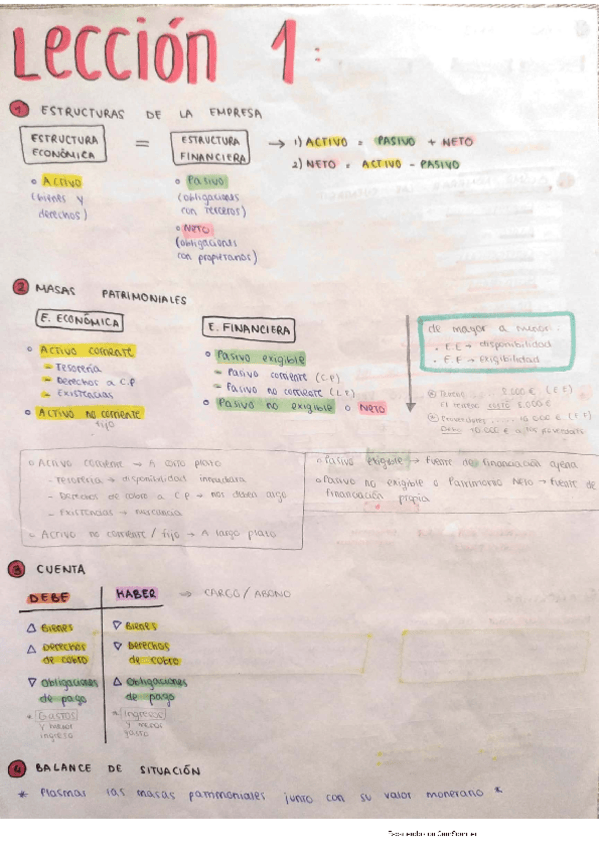 Lección 1:
1 ESTRUCTURAS DE LA EMPRESA
ESTRUCTURA ECONÓMICA = ESTRUCTURA FINANCIERA → 1) ACTIVO = PASIVO + NETO
2) NETO = ACTIVO - PASIVO
o Activo
(bienes y
derechos)
o Pasivo
(obligaciones
con terceros)
o Neto
(obligaciones
con propietarios)
2 MASAS PATRIMONIALES
E. ECONÓMICA
o Activo corriente
- Tesorería
- Derechos a C.P
- Existencias
o Activo no corriente
fijo
E. FINANCIERA
o Pasivo exigible
- Pasivo corriente (C.P)
- Pasivo no corriente
o Pasivo no exigible o Neto
de mayor a menor:
. E.E → disponibilidad
. E.F → exigibilidad
o Activo corriente → A corto plazo
- Tesorería → disponibilidad inmediata
- Derechos de cobro a C.P → nos deben
- Existencias → mercancía
o Activo no corriente / fijo → A largo plazo
o Pasivo exigible → fuente de financiación ajena
o Pasivo no exigible o Patrimonio Neto → fuente de
financiación propia
3 CUENTA
DEBE HABER → CARGO / ABONO
△ Bienes
△ Derechos
de cobro
▽ Obligaciones
de pago
* Gastos
y menor
ingreso
▽ Bienes
▽ Derechos
de cobro
△ Obligaciones
de pago
* Ingreso
y menos
gasto
4 BALANCE DE SITUACIÓN
* Plasmar las masas patrimoniales junto con su valor monetario *